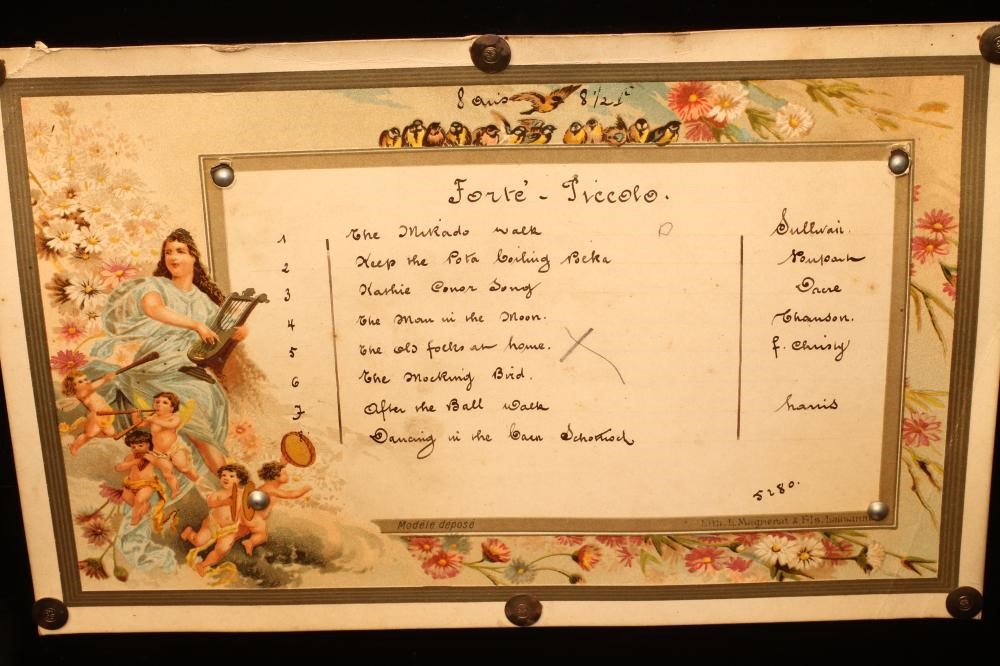 8 airs 8 1/2 F
Forte' - Piccolo.
1 The Mikado walk Sullivan.
2 Keep the Pota boiling Polka
3 Kathie Conor Song Dacre
4 The Man in the Moon. Thauson.
5 The old folks at home. f. Christy
6 The Mocking Bird.
7 After the Ball Walk harris
Dancing in the Barn Schottisch
5280.
Modèle déposé
Lith. L. Magnenat & Fils. Lausanne